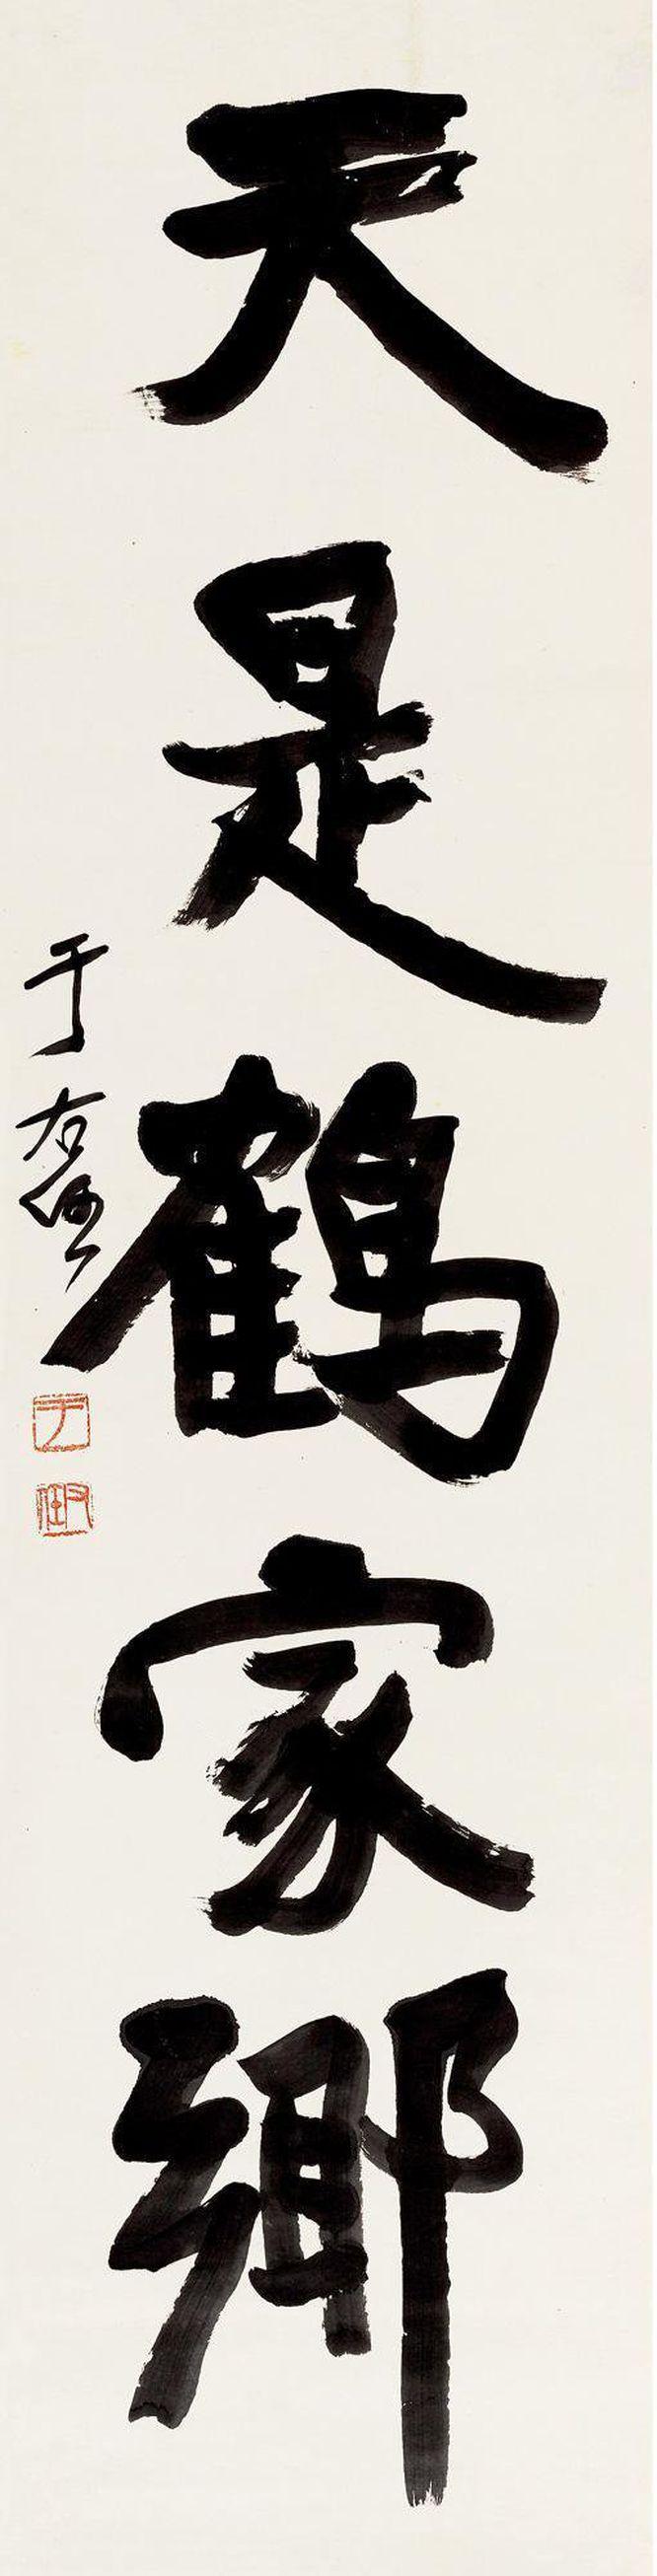 天是鶴家鄉
于右任
于